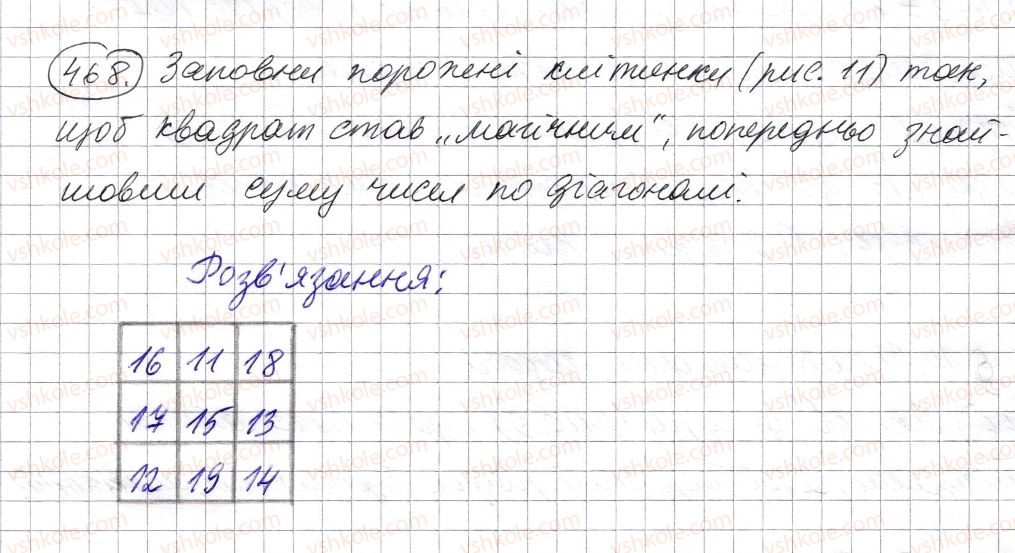 468. Заповни порожні клітинки (рис. 11) так,
щоб квадрат став „магічним“, попередньо знай-
шовши суму чисел по діагоналі.
Розв'язання:
16 11 18
17 15 13
12 19 14